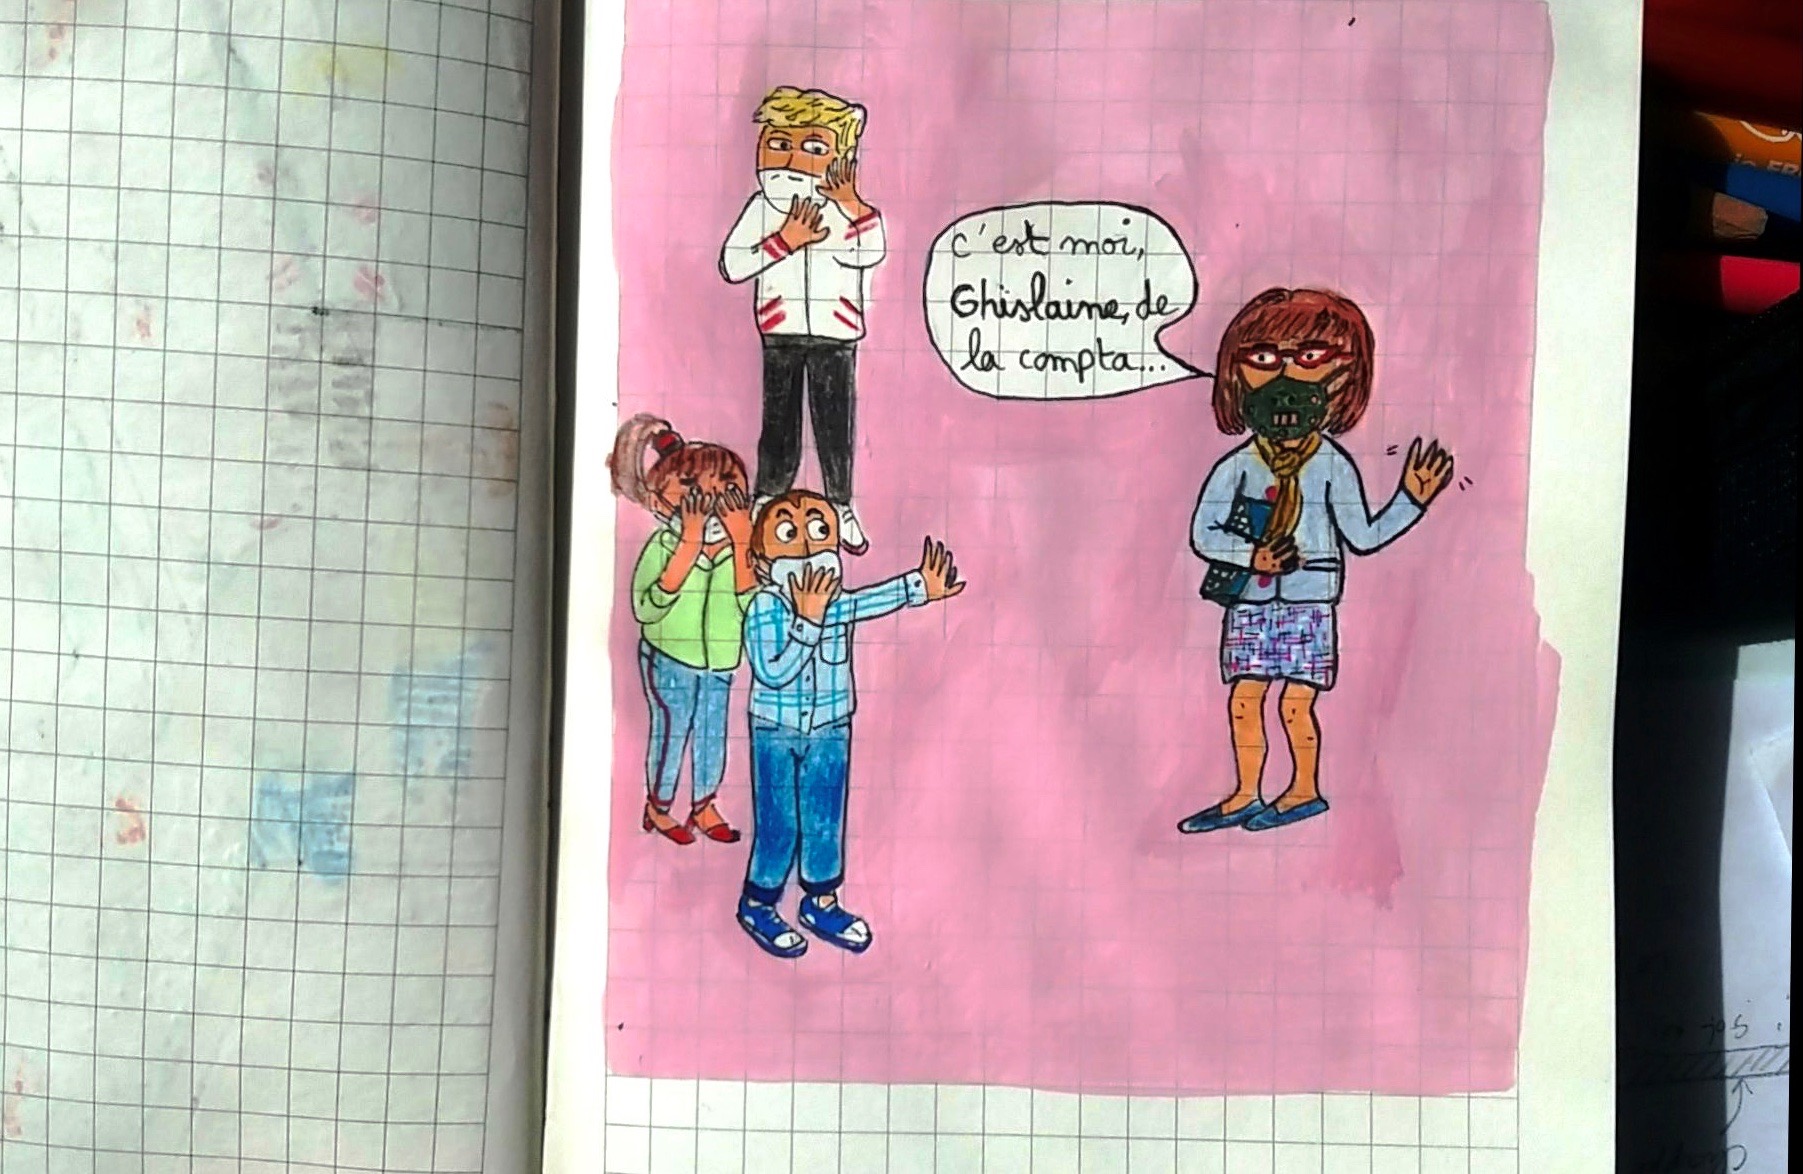 c'est moi,
Ghislaine, de
la compta...